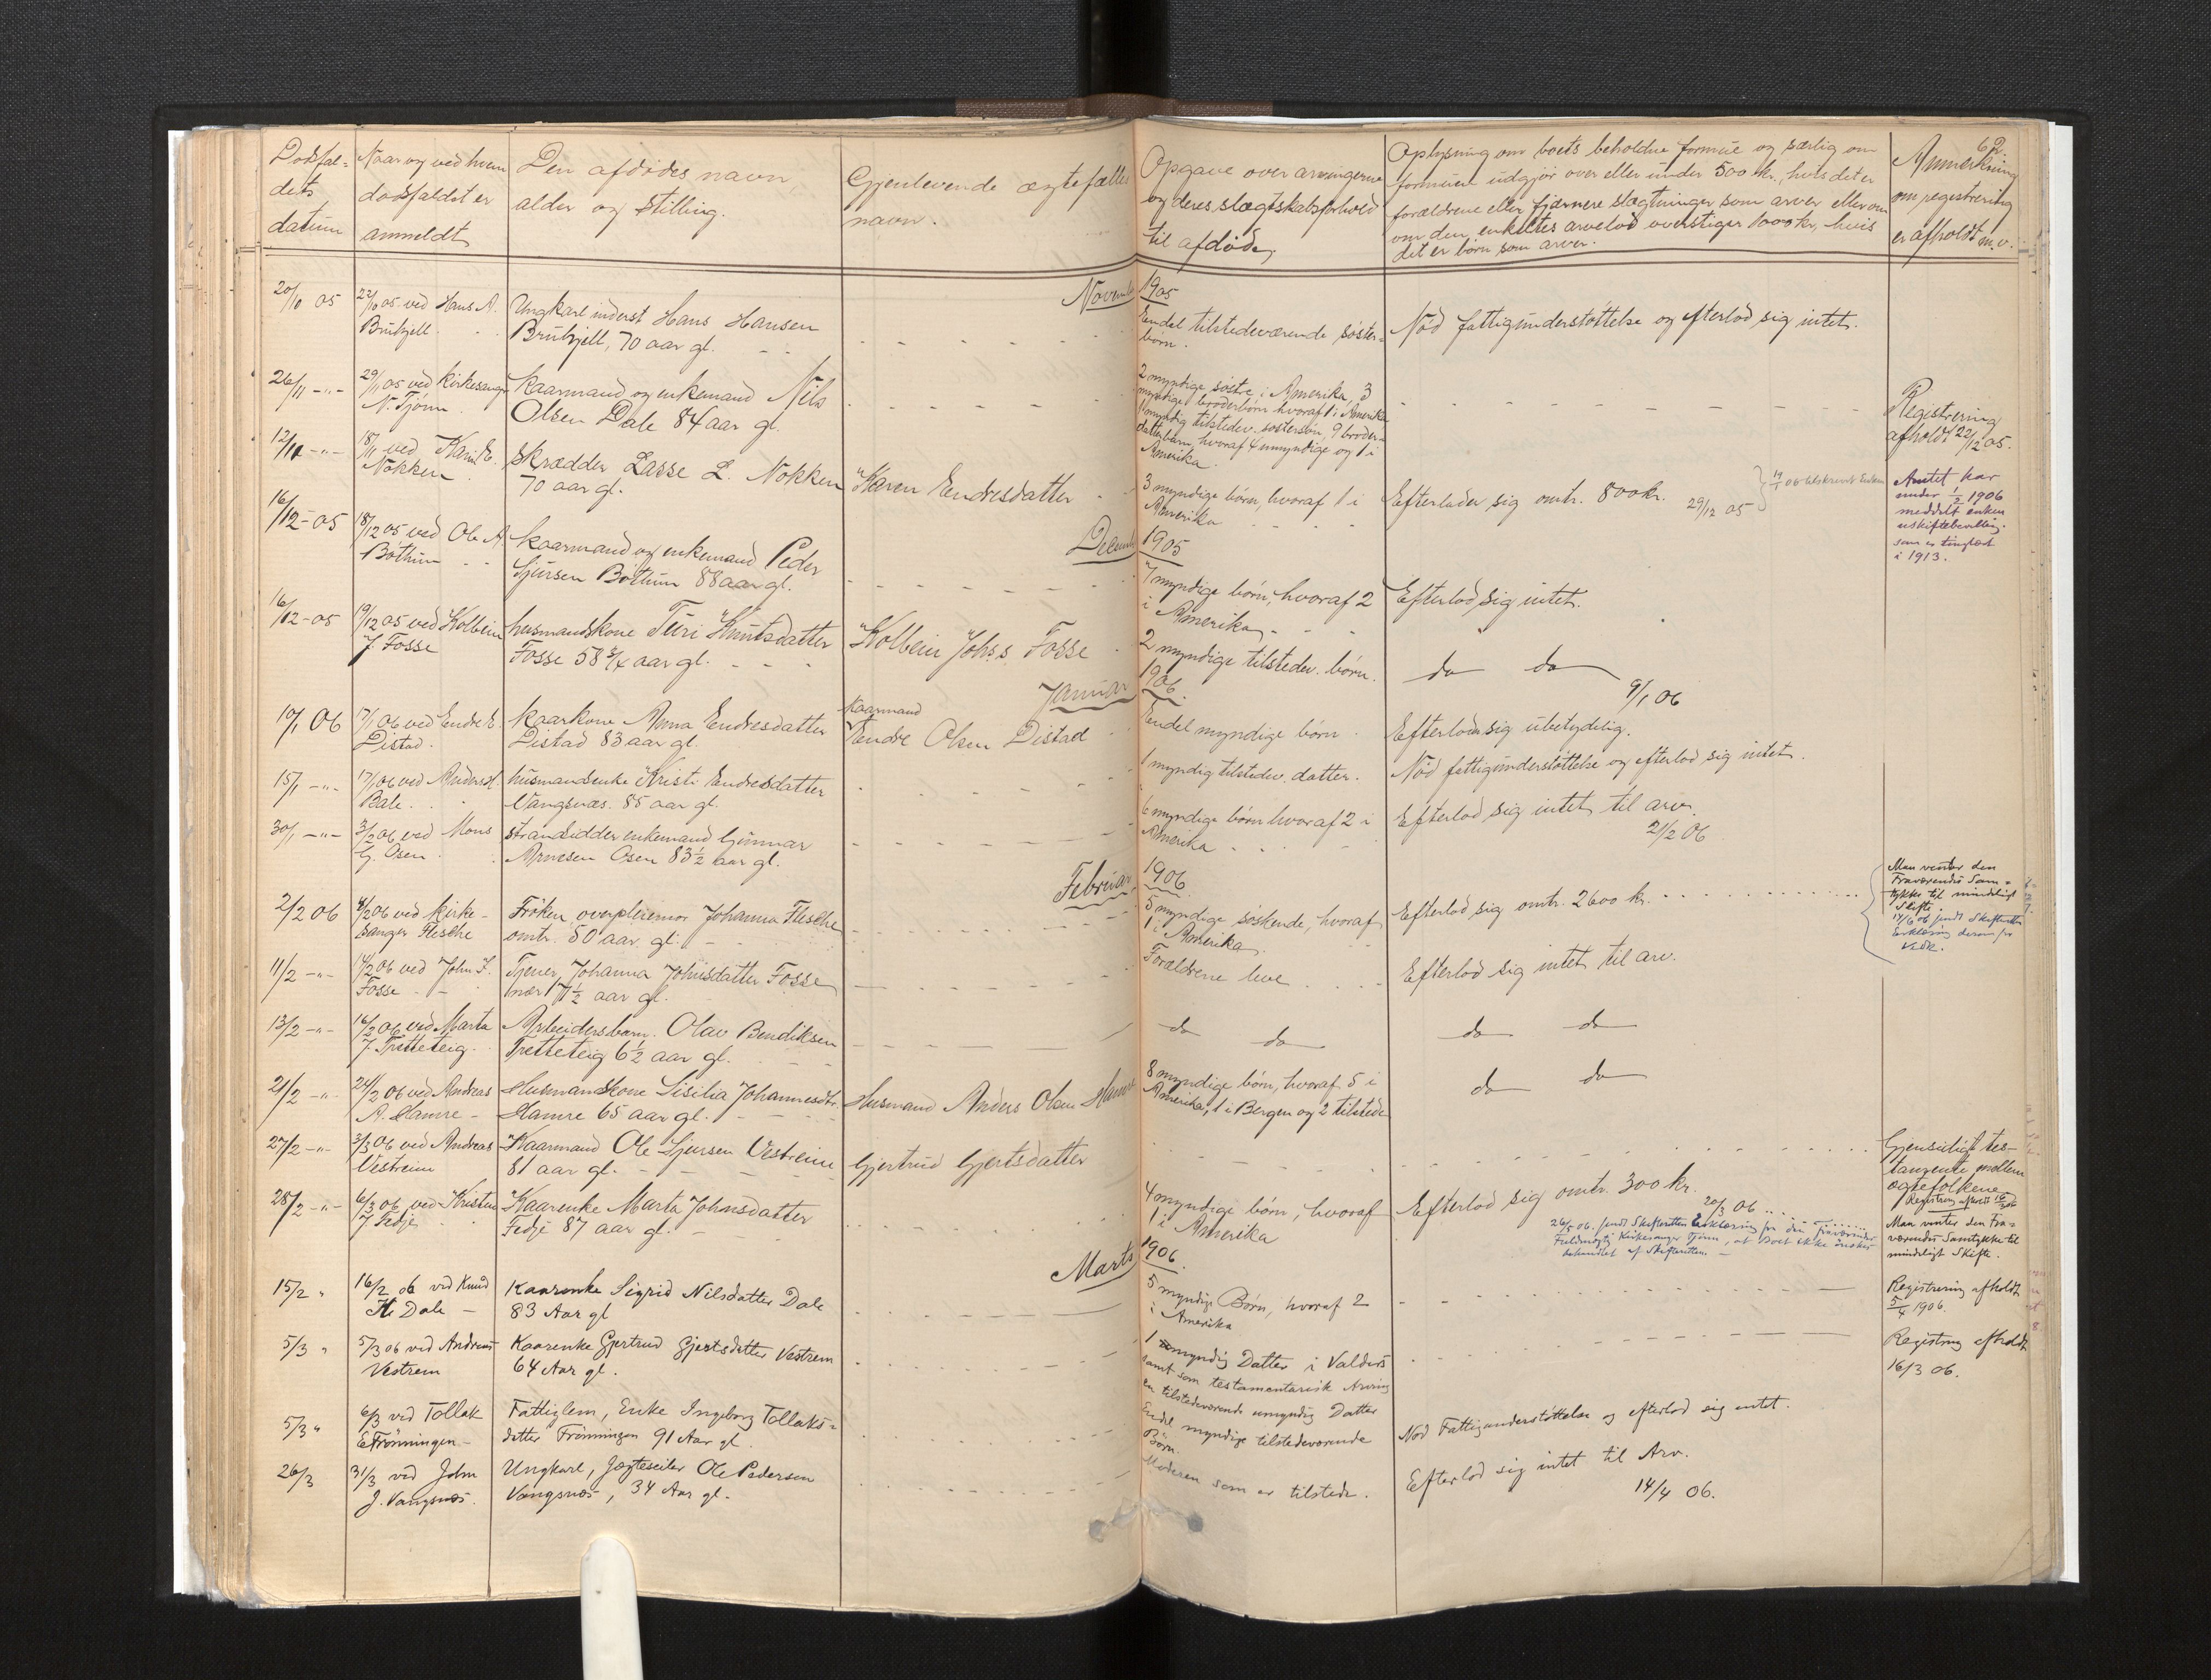 62.
Dødsfal-
dets
datum
Naar og ved hvem
dødsfaldet er
anmeldt
Den afdødes navn,
alder og stilling.
Gjenlevende ægtefælles
navn.
Opgave over arvingerne
og deres slægtskabsforhold
til afdøde,
Oplysning om boets beholdne formue og særlig om
formuen udgjør over eller under 500 kr., hvis det er
forældrene eller fjærnere slægtninger som arver eller om
om den enkeltes arvelod overstiger 1000 kr, hvis
det er børn som arver.
Anmerkning
om registrering
er afholdt m.v.
November 1905
20/10 05
22/10 05 ved Hans A.
Brukjell
Ungkarl inderst Hans Hansen
Brukjell, 70 aar gl.
Endel tilstedeværende søster-
børn.
Nød fattigunderstøttelse og efterlod sig intet.
26/11 -"-
29/11 05 ved kirkesanger
N. Tjønn
Kaarmand og enkemand Nils
Olsen Dale 84 aar gl.
2 myndige søstre i Amerika, 3
myndige broderbørn hvoraf 1 i Amerika
1 myndig tilstedev. søstersøn, 9 broder-
datterbørn, hvoraf 4 umyndige og 1 i
Amerika.
Registrering
afholdt 22/12 05.
12/11 -"-
18/11 ved Kari E.
Nokken
Skrædder Lasse L. Nokken
70 aar gl.
Karen Endresdatter
3 myndige børn, hvoraf 1 i
Amerika
Efterlader sig omtr. 800 kr.
29/12 05
06 tilskrevet Enken
Amtet har
under 1/2 1906
meddelt enken
uskiftebevilling.
som er tinglæst
i 1913.
December 1905
16/12-05
18/12 05 ved Ole A.
Bøthun
Kaarmand og enkemand Peder
Sjursen Bøthun 88 aar gl.
7 myndige børn, hvoraf 2
i Amerika
Efterlod sig intet.
16/12-05
19/12 05 ved Kolbein
J. Fosse
husmandskone Turi Knutsdatter
Fosse 58 3/4 aar gl.
Kolbein Johs.s. Fosse
2 myndige tilstedev. børn.
do do
9/1 06
Januar 1906.
10/1 06
17/1 06 ved Endre E.
Distad.
Kaarkone Anna Endresdatter
Distad 83 aar gl.
Kaarmand
Endre Olsen Distad
Endel myndige børn
Efterlod sig ubetydelig.
15/1 -"-
17/1 06 ved Anders H.
Bale.
husmandsenke Kristi Endresdatter
Vangsnæs. 85 aar gl.
1 myndig tilstedev. datter.
Nød fattigunderstøttelse og efterlod sig intet.
30/1 -"-
3/2 06 ved Mons
G. Osen
strandsidder enkemand Gunnar
Arnesen Osen 83 1/2 aar gl.
6 myndige børn hvoraf 2 i
Amerika
Efterlod sig intet til arv.
21/2 06
Februar 1906
2/2 06
4/2 06 ved kirke-
sanger Flesche
Frøken, overpleiemor Johanna Flesche
omtr. 50 aar gl.
5 myndige søskende, hvoraf
1 i Amerika.
Efterlod sig omtr. 2600 kr.
Man venter den
Fraværendes Sam-
tykke til mindeligt
Skifte.
14/6 06 sendt Skifteretten
Erklæring derom fra
Vedk.
11/2 -"-
14/2 06 ved John J.
Fosse
Tjener Johanna Johnsdatter Fosse
nær 17 1/2 aar gl.
Forældrene leve
Efterlod sig intet til arv.
13/2 -"-
16/2 06 ved Marta
J. Tretteteig.
Arbeidersbarn. Olav Bendiksen
Tretteteig 6 1/2 aar gl.
do do
do do
21/2 -"-
24/2 06 ved Andreas
A. Hamre
Husmandskone Sisilia Johannesdtr.
Hamre 65 aar gl.
Husmand Anders Olsen Hamre
8 myndige børn, hvoraf 5 i
Amerika, 1 i Bergen og 2 tilstede
do do
27/2 -"-
3/3 06 ved Andreas
Vestreim
Kaarmand Ole Sjursen Vestreim
81 aar gl.
Gjertrud Gjertsdatter
Gjensidigt tes-
tamente mellem
ægtefolkene
Registring afholdt 16/3 06
28/2 -"-
6/3 06 ved Kristen
J. Fedje
Kaarenke Marta Johnsdatter
Fedje 87 aar gl.
4 myndige børn, hvoraf
1 i Amerika
Efterlod sig omtr. 300 kr.
20/3 06
26/5 06. sendt Skifteretten Erklæring fra den Fraværendes
Fuldmægtig Kirkesanger Tjønn, at Boet ikke ønskes
behandlet af Skifteretten.
Man venter den Fra-
værendes Samtykke til
mindeligt Skifte.
Marts 1906.
15/2 "
16/2 06 ved Knud
H. Dale
Kaarenke Sigrid Nilsdatter Dale
83 Aar gl
5 myndige Børn, hvoraf 2
i Amerika
Registrering afholdt
5/4 1906.
5/3 "
5/3 06 ved Andreas
Vestrem
Kaarenke Gjertrud Gjertsdatter Vestrem
64 Aar gl.
1 myndig Datter i Valders
samt som testamentarisk Arving
en tilstedeværende umyndig Datter
Registring afholdt
16/3 06.
5/3 "
6/3 ved Tollak
E Frønningen
Fattiglem, Enke Ingeborg Tollaks-
datter Frønningen 91 Aar gl.
Endel myndige tilstedeværende
Børn.
Nød Fattigunderstøttelse og efterlod sig intet.
26/3
31/3 ved John
J. Vangsnæs.
Ungkarl, Jægteseiler Ole Pedersen
Vangsnæs, 34 Aar gl.
Moderen som er tilstede.
Efterlod sig intet til Arv.
14/4 06.